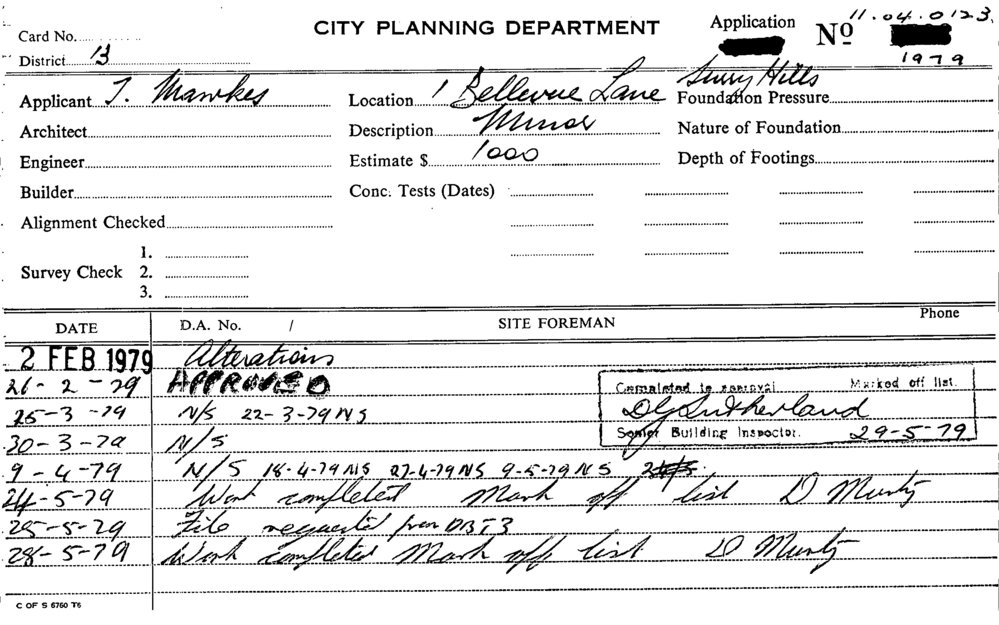 CITY PLANNING DEPARTMENT
Application Nº 11.04.0123
1979
Card No.
District 13
Applicant J. Mawkes
Location 1 Bellevue Lane Surry Hills
Foundation Pressure
Architect
Description Minor
Nature of Foundation
Engineer
Estimate $ 1000
Depth of Footings
Builder
Conc. Tests (Dates)
Alignment Checked
Survey Check
1.
2.
3.
DATE D.A. No. / SITE FOREMAN Phone
2 FEB 1979 Alterations
26-2-79 APPROVED
25-3-79 N/S 22-3-79 NS
30-3-79 N/S
9-4-79 N/S 18-4-79 NS 27-4-79 NS 9-5-79 NS
24-5-79 Work completed Mark off list D Munty
25-5-79 File requested from DIST 3
28-5-79 Work completed Mark off list D Munty
Completed to approval Marked off list.
DG Sutherland
Senior Building Inspector. 29-5-79
C OF S 6760 T6